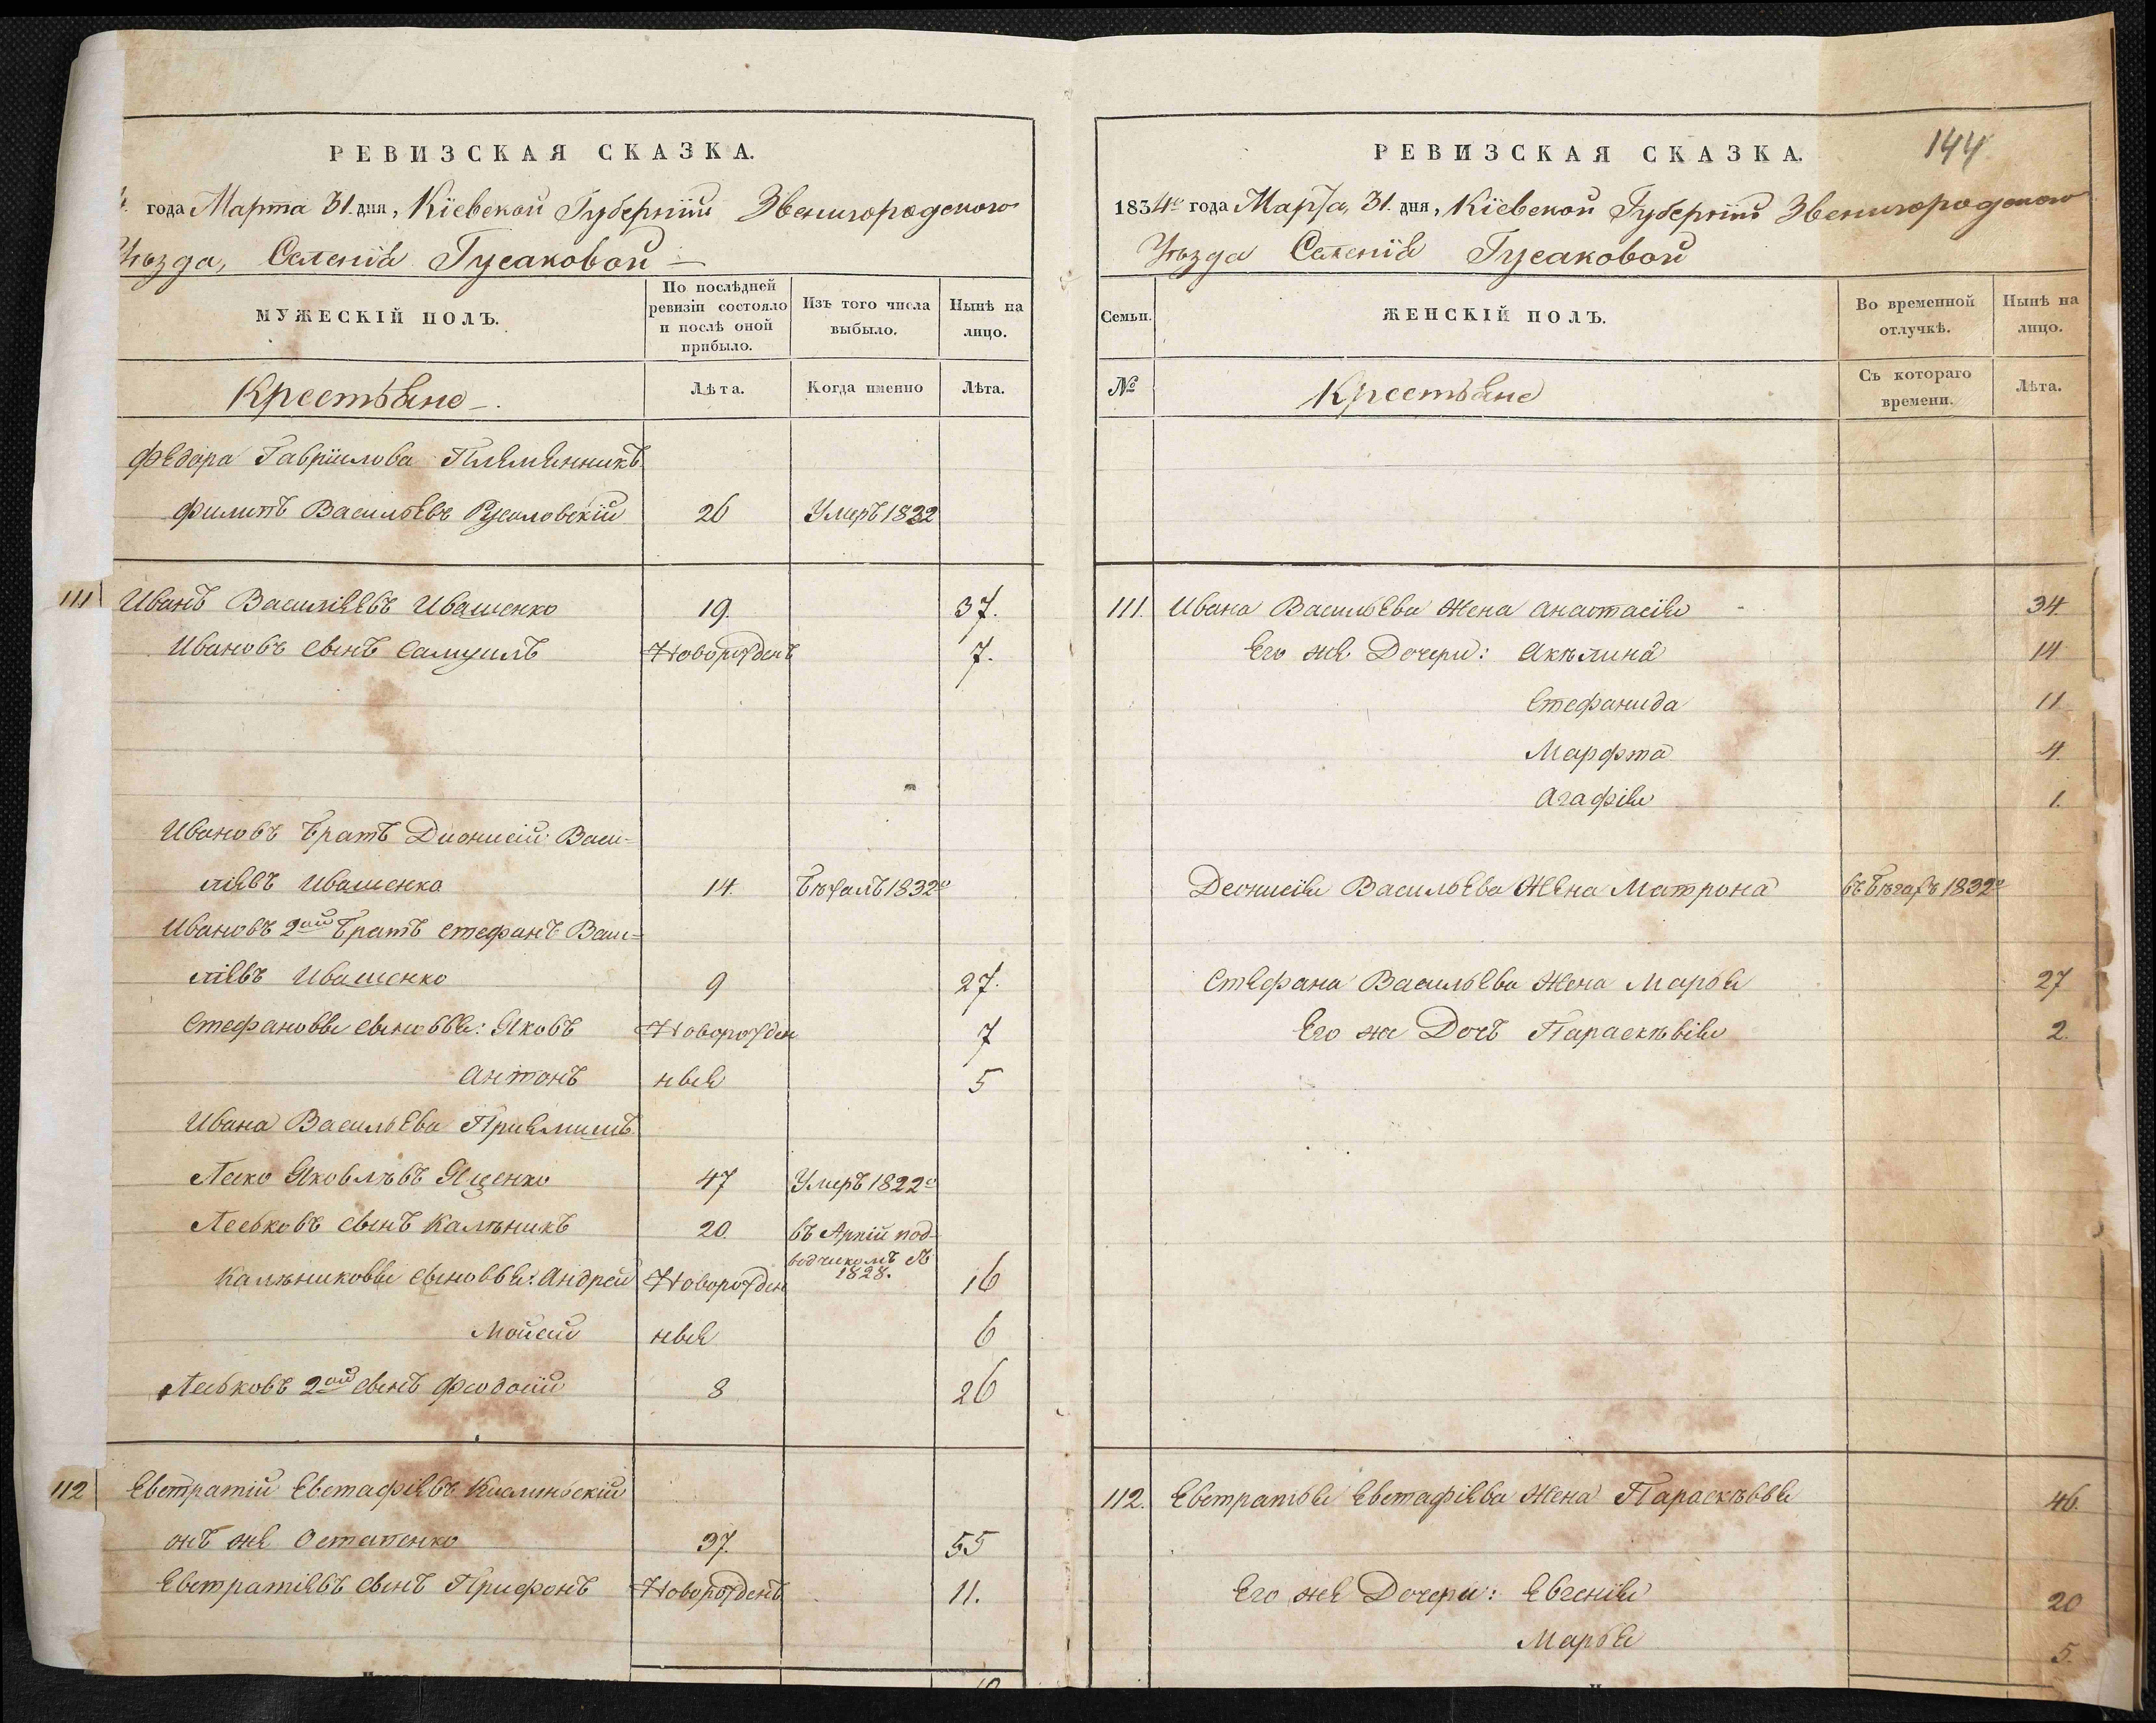 РЕВИЗСКАЯ СКАЗКА.
года Марта 31. дня, Кіевской Губерніи Звенигородского
Уѣзда, Селенія Гусаковой —
МУЖЕСКІЙ ПОЛЪ.
По послѣдней ревизіи состояло и послѣ оной прибыло.
Изъ того числа выбыло.
Нынѣ на лицо.
Крестьяне —.
Лѣта.
Когда именно
Лѣта.
Федора Гавріилова Племянникъ
Филипъ Васильевъ 26 Умеръ 1832
111 Иванъ Василіевъ Ивашенко 19. 37.
Ивановъ сынъ Самуилъ Новорожденъ 7.
Ивановъ Братъ Дионисій Васи-
ліевъ Ивашенко 14. Бѣжалъ 1832го
Ивановъ 2ой Братъ Стефанъ Васи-
ліевъ Ивашенко 9 27.
Стефановы сыновья: Яковъ Новорожден 7
Антонъ ныя 5
Ивана Васильева Приемышъ
Леско Яковлѣвъ Яценко 47 Умеръ 1822го
Леськовъ сынъ Калѣникъ 20. въ Арміи под-
водчикомъ съ 1828.
Калѣниковы сыновья: Андрей Новорожден 16
Мойсей ныя 6
Леськовъ 2ой сынъ Феодосій 8 26
112 Евстратій Евстафіевъ
онъ же Остапенко 37. 55
Евстратіевъ сынъ Трифонъ Новорожденъ 11.
144
РЕВИЗСКАЯ СКАЗКА.
1834го года Марта, 31. дня, Кіевской Губерніи Звенигородского
Уѣзда Селенія Гусаковой
Семьи.
ЖЕНСКІЙ ПОЛЪ.
Во временной отлучкѣ.
Нынѣ на лицо.
№
Крестьяне
Съ котораго времени.
Лѣта.
111. Ивана Васильева Жена Анастасія 34.
Его же Дочери: Акѣлина 14
Стефанида 11
Марфта 4.
Агафія 1.
Деонисія Васильева Жена Матрона въ Бѣгахъ 1832го
Стефана Васильева Жена Марья 27
Его же Дочь Параскѣвія 2.
112. Евстратья Евстафіева Жена Параскѣвья 46.
Его же Дочери: Евгенія 20
Марья 5.